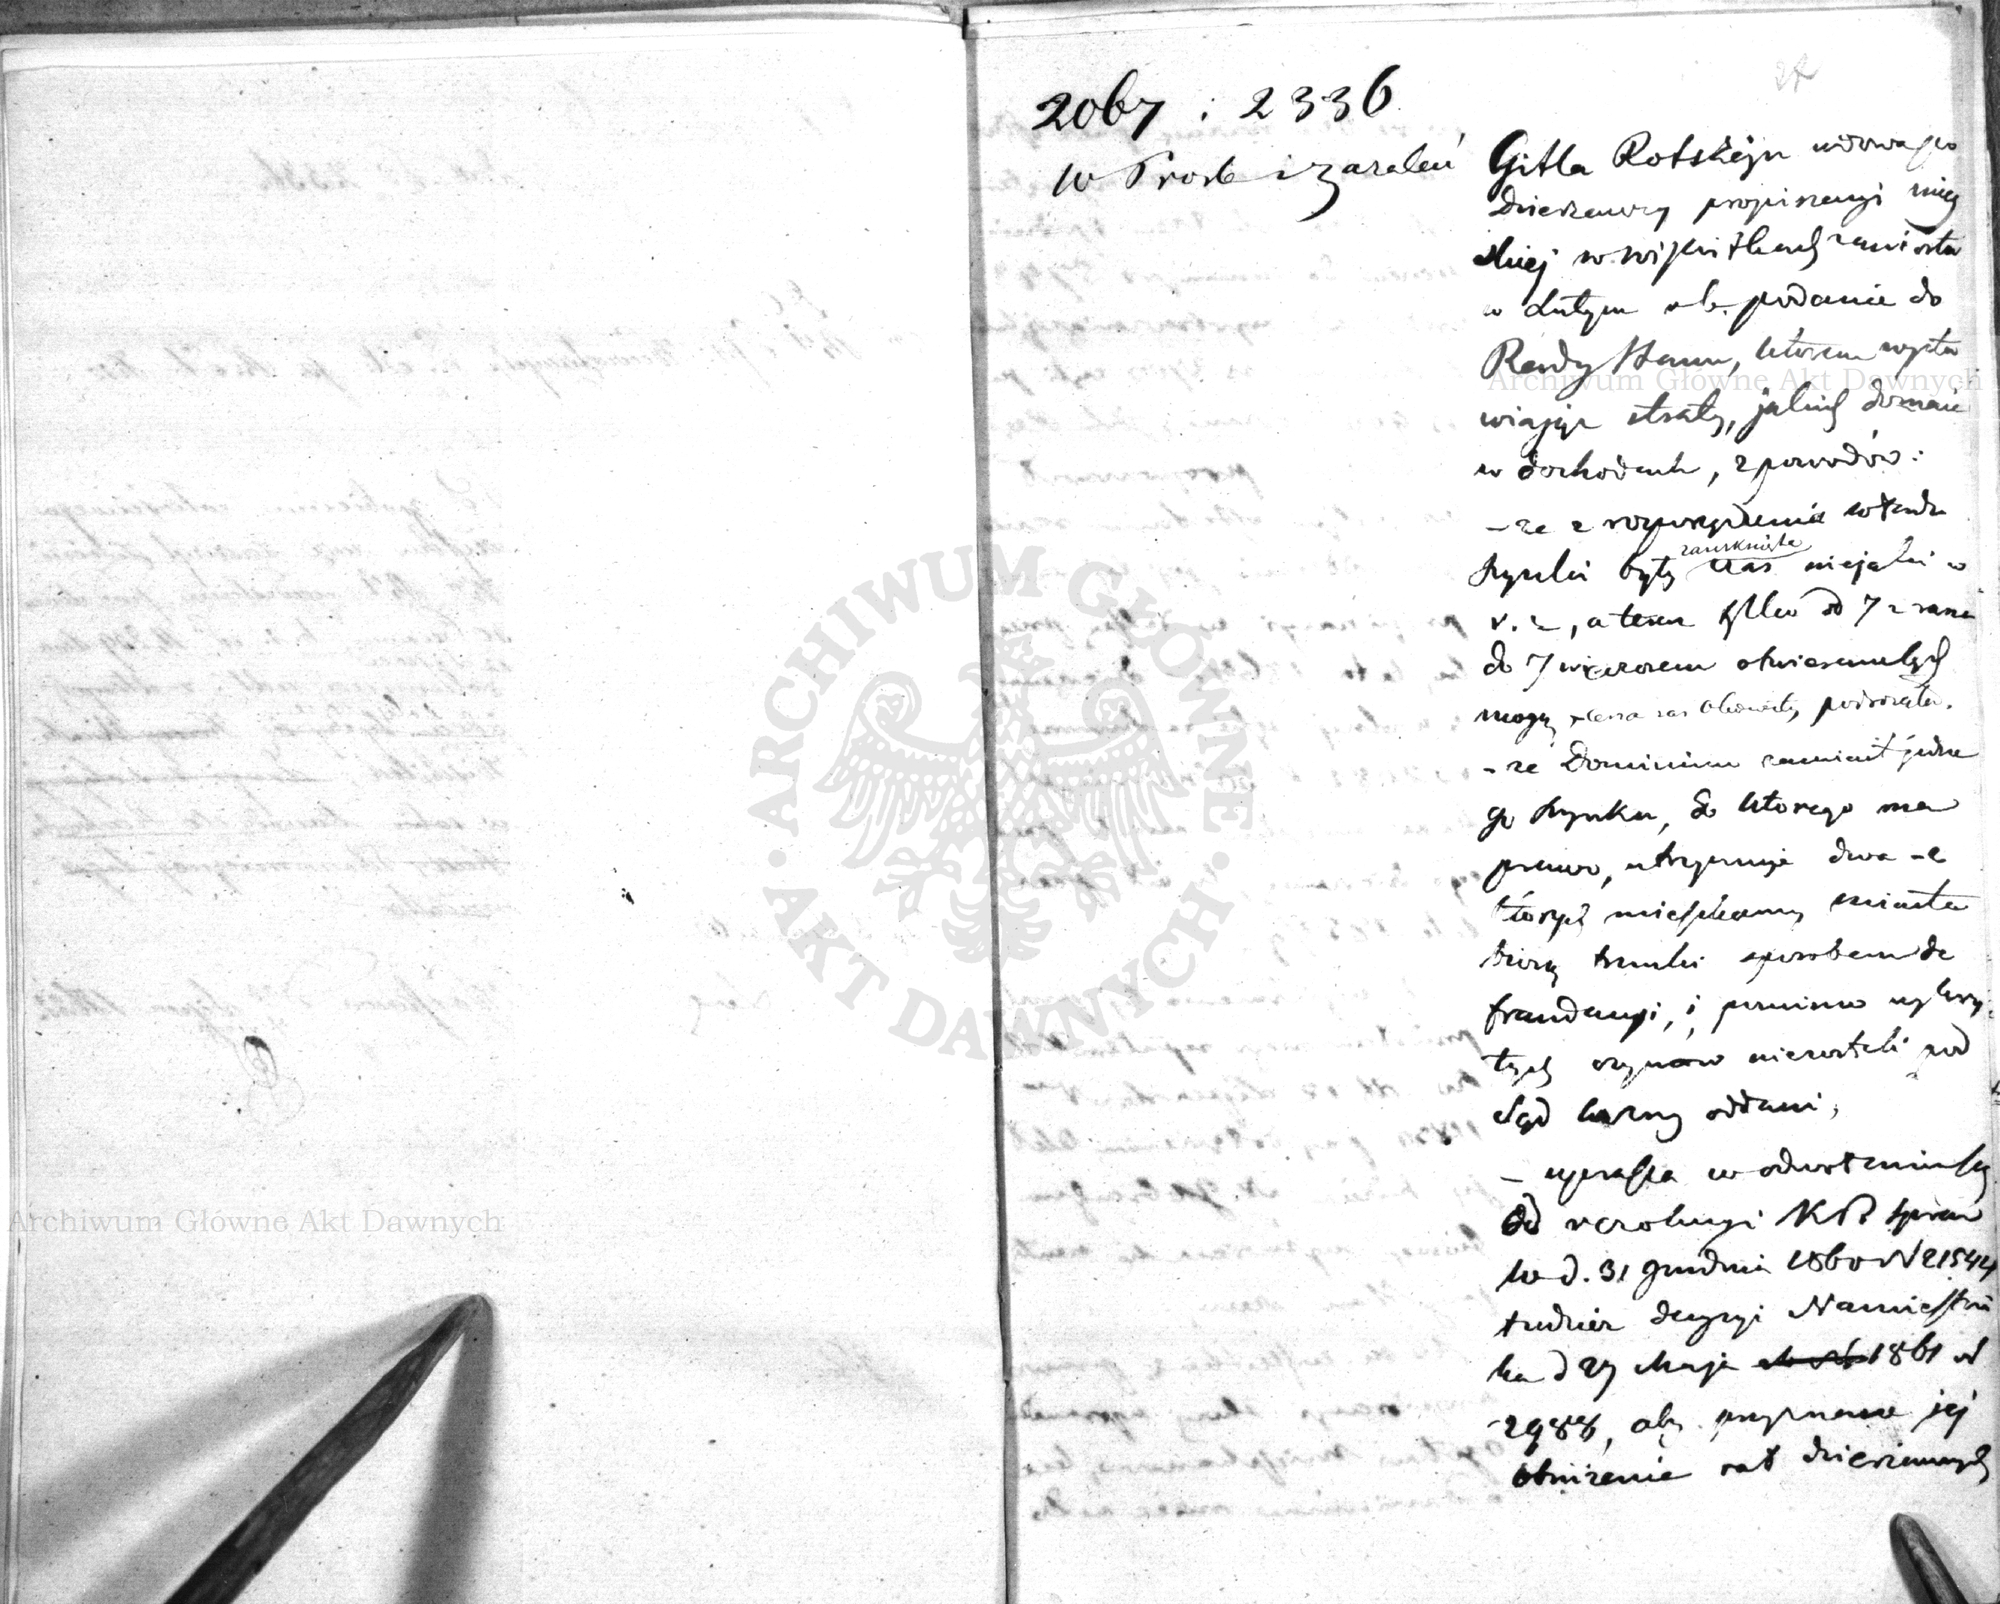 27
2067 i 2336
W Prosb i zazaleń
Gitla Rotsztejn wdowa po
Dzierżawcy propinacyi miej
skiej w Wiskitkach zaniosła
w Lutym r b. podanie do
Rady Stanu, którem wysta
wiając straty, jakich doznaie
w dochodach, z powodów:
– że z rozporządzenia władz
szynki były zamknięte czas niejaki w
r. z, a teraz tylko od 7 z rana
do 7 wieczorem otwieranych
mogą podrożała.
– że Dominium zamiast jedne
go szynku, do którego ma
prawo, utrzymuje dwa – z
których mieszkańcy miasta
biorą trunki sposobem de
fraudacyi, i pomimo wykry
tych czynów niezostali pod
Sąd karny oddani,
– uprasza w odwołaniu się
od rezolucyi KR Spraw
W d. 31 grudnia 1860 N 21544
tudzież decyzyi Namiestni
ka d 27 Maja 1861 N
2988, aby przyznane jej
obniżenie rat dzierżawnych
Archiwum Główne Akt Dawnych
Archiwum Główne Akt Dawnych
ARCHIWUM GŁÓWNE · AKT DAWNYCH ·